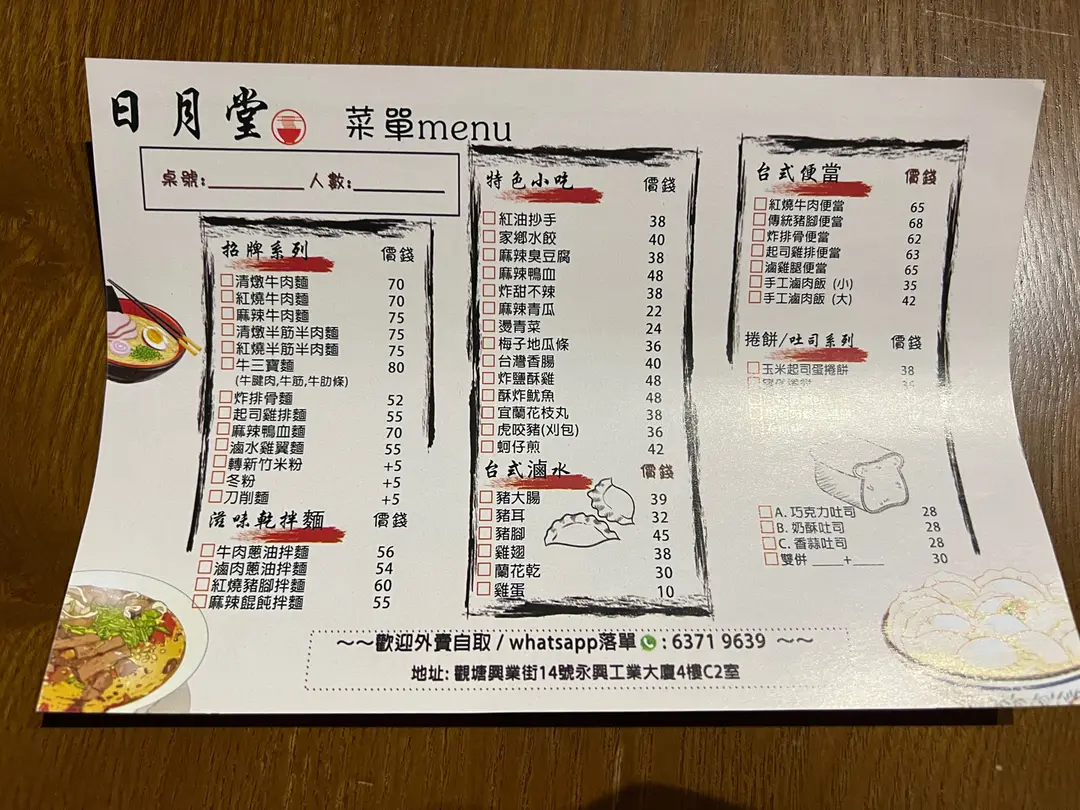 日月堂 菜單menu
桌號: 人數:
招牌系列 價錢
清燉牛肉麵 70
紅燒牛肉麵 70
麻辣牛肉麵 75
清燉半筋半肉麵 75
紅燒半筋半肉麵 75
牛三寶麵 80
(牛腱肉,牛筋,牛肋條)
炸排骨麵 52
起司雞排麵 55
麻辣鴨血麵 70
滷水雞翼麵 55
轉新竹米粉 +5
冬粉 +5
刀削麵 +5
滋味乾拌麵 價錢
牛肉蔥油拌麵 56
滷肉蔥油拌麵 54
紅燒豬腳拌麵 60
麻辣餛飩拌麵 55
特色小吃 價錢
紅油抄手 38
家鄉水餃 40
麻辣臭豆腐 38
麻辣鴨血 48
炸甜不辣 38
麻辣青瓜 22
燙青菜 24
梅子地瓜條 36
台灣香腸 40
炸鹽酥雞 48
酥炸魷魚 48
宜蘭花枝丸 38
虎咬豬(刈包) 36
蚵仔煎 42
台式滷水 價錢
豬大腸 39
豬耳 32
豬腳 45
雞翅 38
蘭花乾 30
雞蛋 10
台式便當 價錢
紅燒牛肉便當 65
傳統豬腳便當 68
炸排骨便當 62
起司雞排便當 63
滷雞腿便當 65
手工滷肉飯 (小) 35
手工滷肉飯 (大) 42
捲餅/吐司系列 價錢
玉米起司蛋捲餅 38
A. 巧克力吐司 28
B. 奶酥吐司 28
C. 香蒜吐司 28
雙併 ____+____ 30
～～歡迎外賣自取 / whatsapp落單 : 6371 9639 ～～
地址: 觀塘興業街14號永興工業大廈4樓C2室